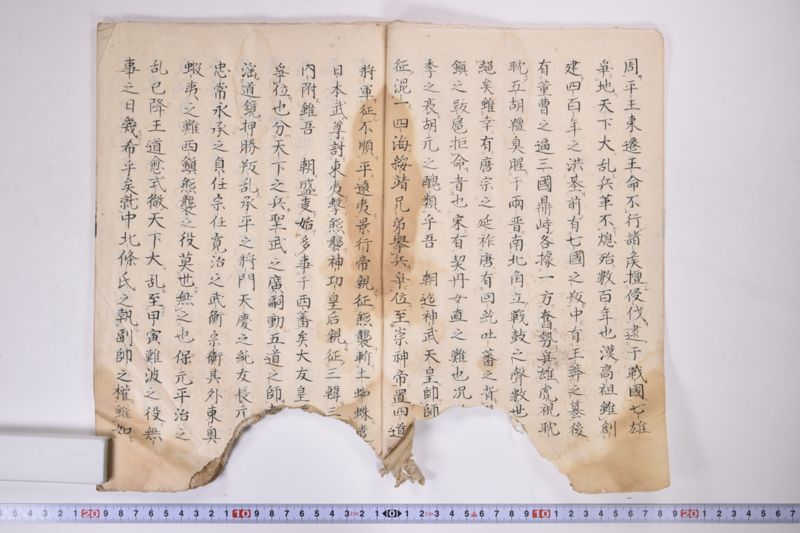 周平王東遷王命不行諸矦擅侵伐逮于戰國七雄
爭地天下大乱兵革不熄殆數百年也漢高祖雖創
建四百年之洪基前有七國之叛中有王莽之篡後
有董曹之過三國鼎峙各據一方奮勢兵雄虎視耽
耽五胡羶臭腥于兩晋南北角立戰鼓之聲數世
絕矣雖幸有唐宗之延祚唐有回紇吐蕃之背
鎮之跋扈拒命者也宋有契丹女直之難也况
季之喪胡元之醜類乎吾 朝迄神武天皇師師
征混一四海綏靖兄弟舉兵爭位至崇神帝置四道
將軍征不順平遠夷景行帝親征熊襲斬土蜘蛛
日本武尊討東夷擊熊襲神功皇后親征三韓三
內附雖吾 朝盛吏始多事于西蕃矣大友皇
爭位也分天下之兵聖武之廣嗣動五道之師
滛道鏡押勝叛乱承平之將門天慶之純友長元
忠常永承之貞任宗任寛治之武衡宗衡其外東奥
蝦夷之難西鎮熊襲之役莫世無之也保元平治之
乱已降王道愈式微天下大乱至甲寅難波之役無
事之日幾希乎矣就中北條氏之執副師之權雖如